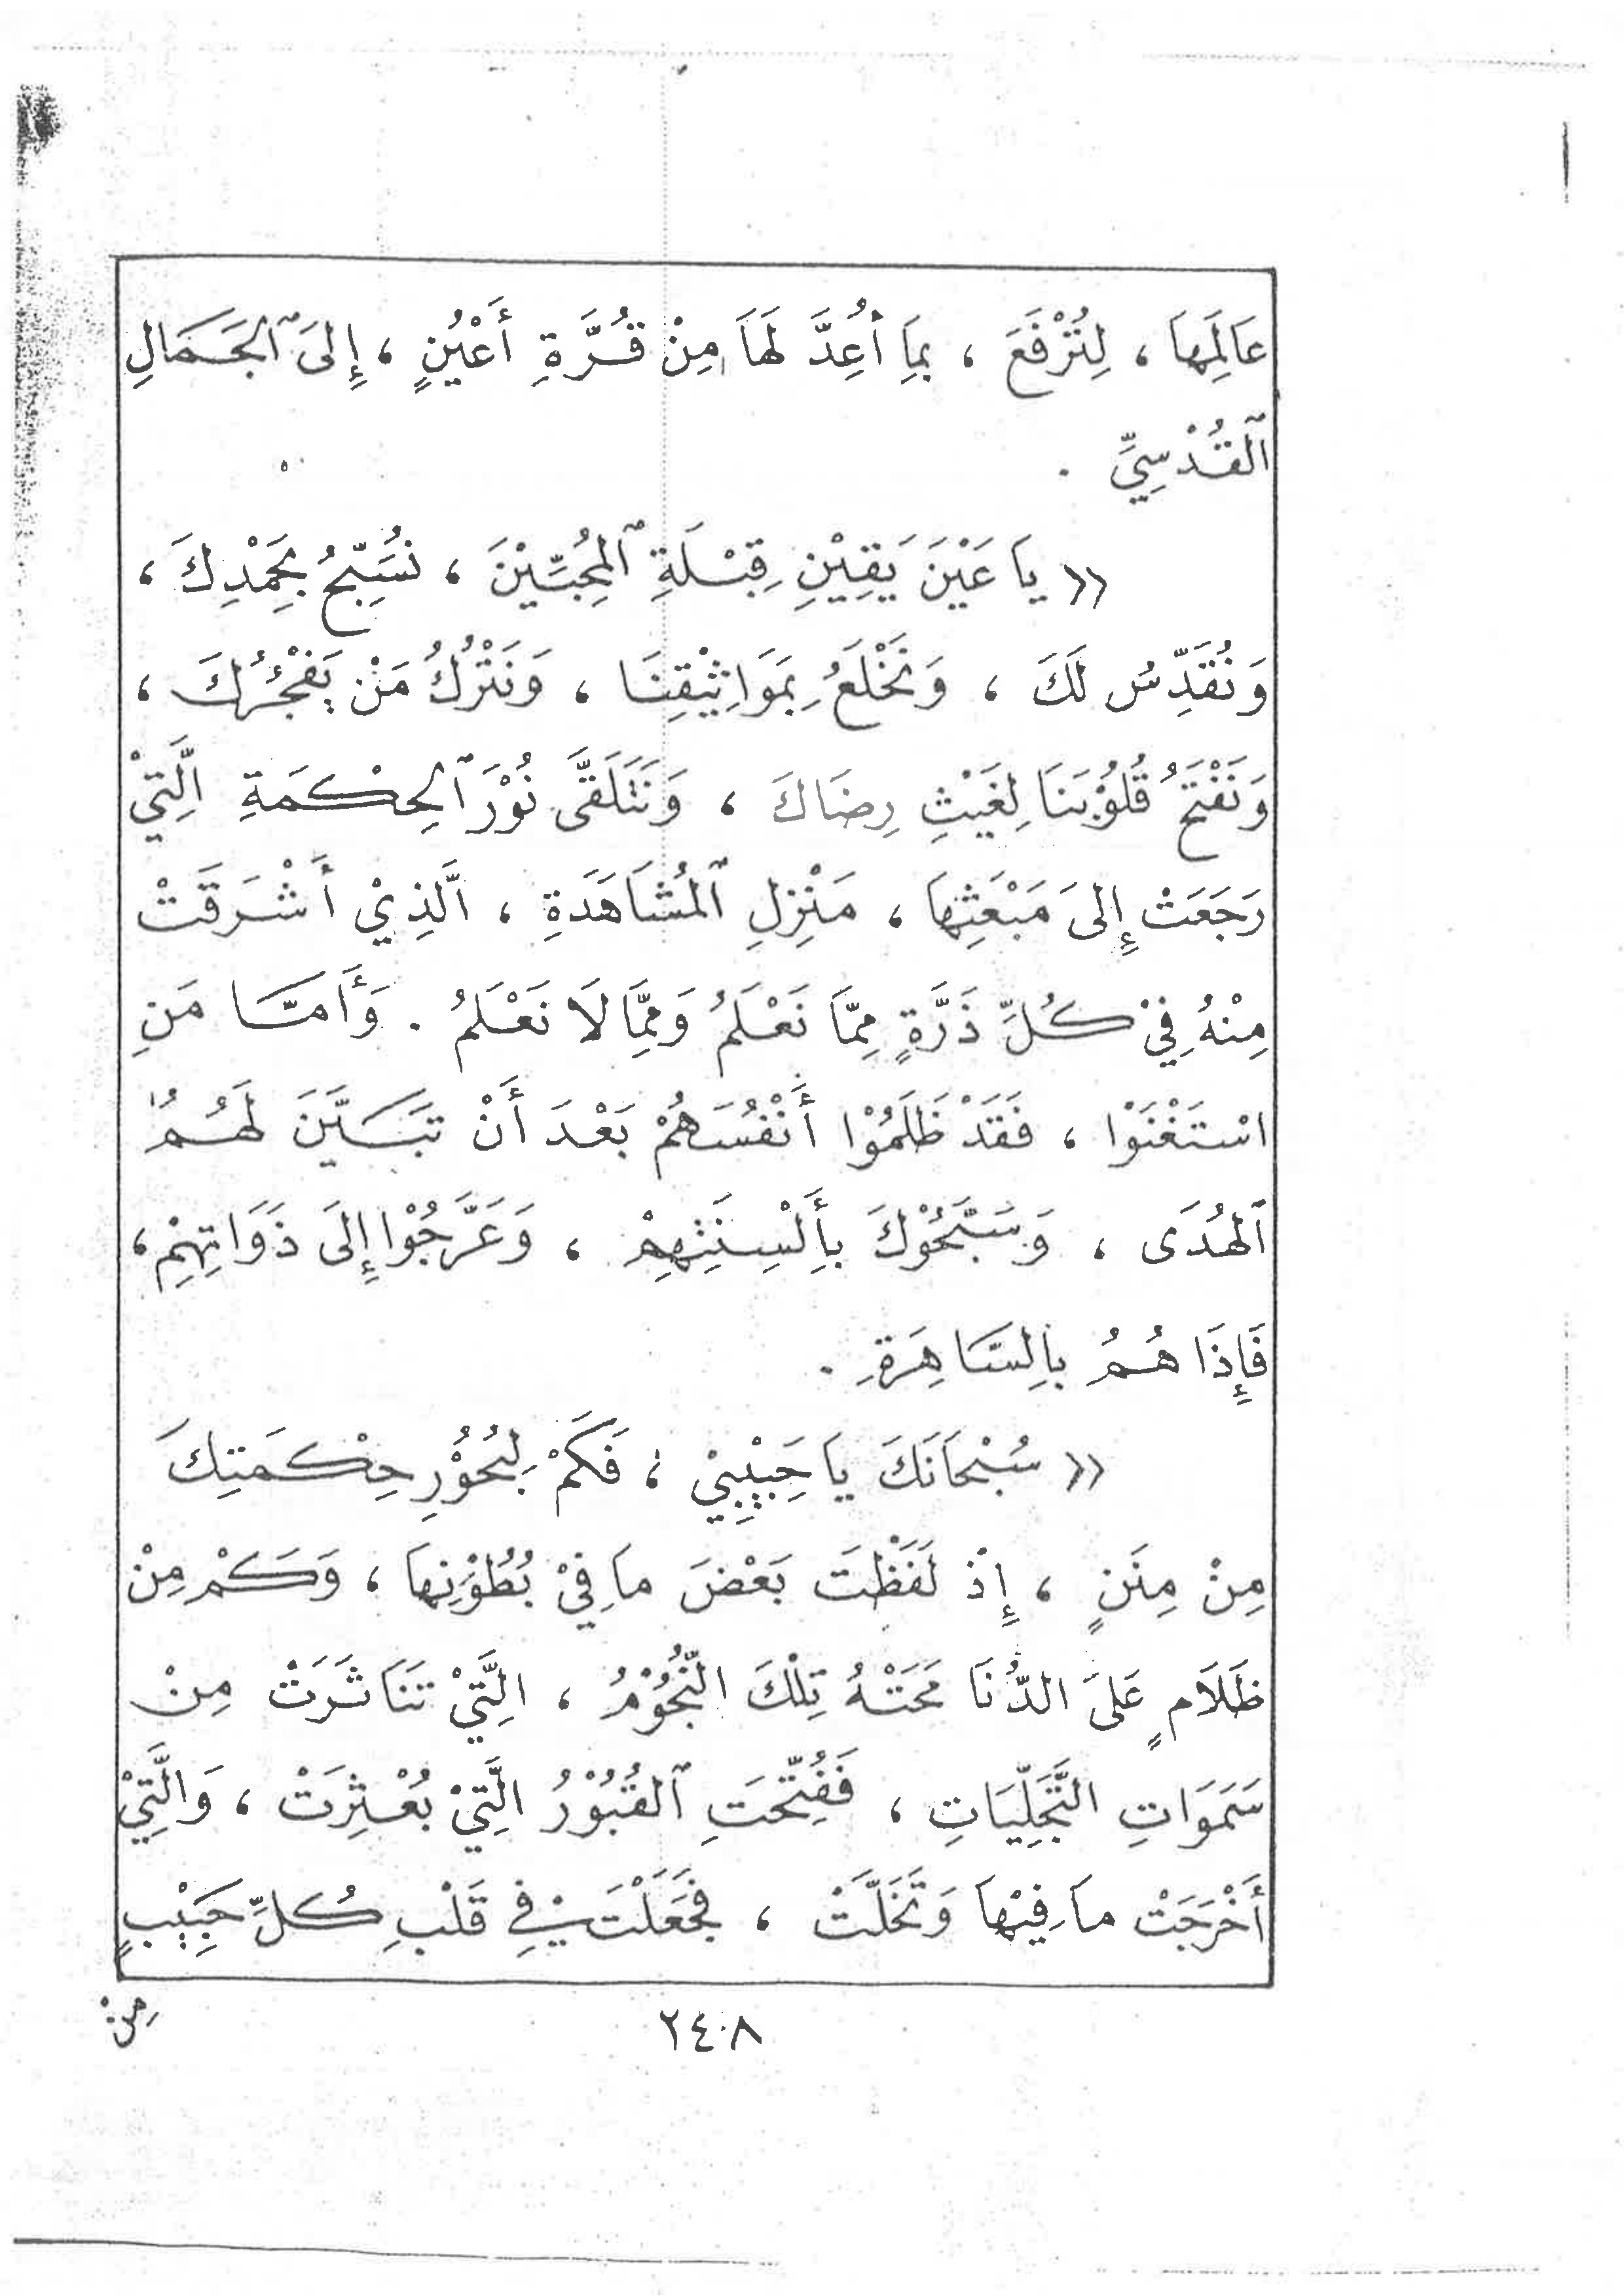 عَالَمِهَا ، لِتُرْفَعَ ، بِمَا أُعِدَّ لَهَا مِنْ قُرَّةِ أَعْيُنٍ ، إِلَى ٱلْجَمَالِ
ٱلْقُدْسِيِّ .
« يَا عَيْنَ يَقِيْنِ قِبْلَةِ ٱلْمُحِبِّيْنَ ، نُسَبِّحُ بِحَمْدِكَ ،
وَنُقَدِّسُ لَكَ ، وَنَخْلَعُ بِمَوَاثِيْقِنَا ، وَنَتْرُكُ مَنْ يَفْجُرُكَ ،
وَنَفْتَحُ قُلُوْبَنَا لِغَيْثِ رِضَاكَ ، وَنَتَلَقَّى نُوْرَ ٱلْحِكْمَةِ الَّتِيْ
رَجَعَتْ إِلَى مَبْعَثِهَا ، مَنْزِلِ ٱلْمُشَاهَدَةِ ، الَّذِيْ أَشْرَقَتْ
مِنْهُ فِيْ كُلِّ ذَرَّةٍ مِمَّا نَعْلَمُ وَمِمَّا لَا نَعْلَمُ . وَأَمَّا مَنِ
اسْتَغْنَوْا ، فَقَدْ ظَلَمُوْا أَنْفُسَهُمْ بَعْدَ أَنْ تَبَيَّنَ لَهُمُ
ٱلْهُدَى ، وَسَبَّحُوْكَ بِأَلْسِنَتِهِمْ ، وَعَرَّجُوْا إِلَى ذَوَاتِهِمْ ،
فَإِذَا هُمُ بِالسَّاهِرَةِ .
« سُبْحَانَكَ يَا حَبِيْبِيْ ، فَكَمْ لِبُحُوْرِ حِكْمَتِكَ
مِنْ مِنَنٍ ، إِذْ لَفَظْتَ بَعْضَ مَا فِيْ بُطُوْنِهَا ، وَكَمْ مِنْ
ظَلَامٍ عَلَى الدُّنَا مَحَتْهُ تِلْكَ النُّجُوْمُ ، الَّتِيْ تَنَاثَرَتْ مِنْ
سَمَوَاتِ التَّجَلِّيَاتِ ، فَفُتِّحَتِ ٱلْقُبُوْرُ الَّتِيْ بُعْثِرَتْ ، وَالَّتِيْ
أَخْرَجَتْ مَا فِيْهَا وَتَخَلَّتْ ، فَجَعَلْتَ فِي قَلْبِ كُلِّ حَبِيْبٍ
٢٤٠٨
مِنْ